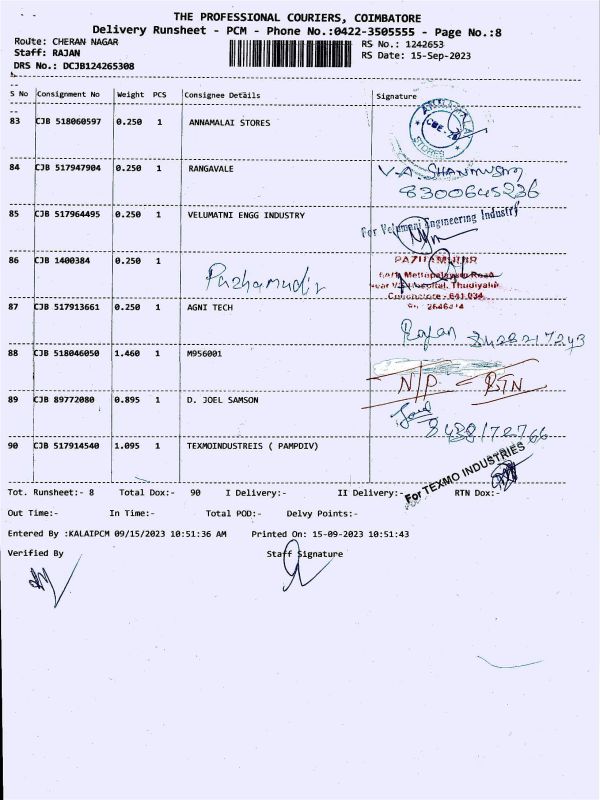 THE PROFESSIONAL COURIERS, COIMBATORE
Delivery Runsheet - PCM - Phone No.:0422-3505555 - Page No.:8
Route: CHERAN NAGAR RS No.: 1242653
Staff: RAJAN RS Date: 15-Sep-2023
DRS No.: DCJB124265308
S No Consignment No Weight PCS Consignee Details Signature
83 CJB 518060597 0.250 1 ANNAMALAI STORES
ANNAMALAI STORES
84 CJB 517947904 0.250 1 RANGAVALE
V.A. SHANMUGAM
8300645236
85 CJB 517964495 0.250 1 VELUMATNI ENGG INDUSTRY
For Velumani Engineering Industry
86 CJB 1400384 0.250 1 Pazhamudir
PAZHAMUDIR
Mettupalayam Road
Hospital, Thudiyalur
Coimbatore - 641 034
87 CJB 517913661 0.250 1 AGNI TECH
Rajan 8428217243
88 CJB 518046050 1.460 1 M956001
N/P - RTN
89 CJB 89772080 0.895 1 D. JOEL SAMSON
8488172766
90 CJB 517914540 1.095 1 TEXMOINDUSTREIS ( PAMPDIV)
For TEXMO INDUSTRIES
Tot. Runsheet:- 8 Total Dox:- 90 I Delivery:- II Delivery:- RTN Dox:-
Out Time:- In Time:- Total POD:- Delvy Points:-
Entered By :KALAIPCM 09/15/2023 10:51:36 AM Printed On: 15-09-2023 10:51:43
Verified By Staff Signature